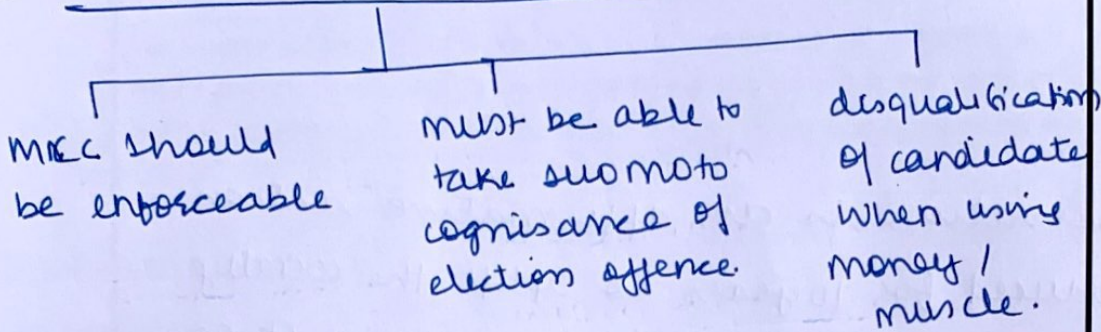 MCC should
be enforceable
must be able to
take suo moto
cognisance of
election offence.
disqualification
of candidate
when using
money /
muscle.